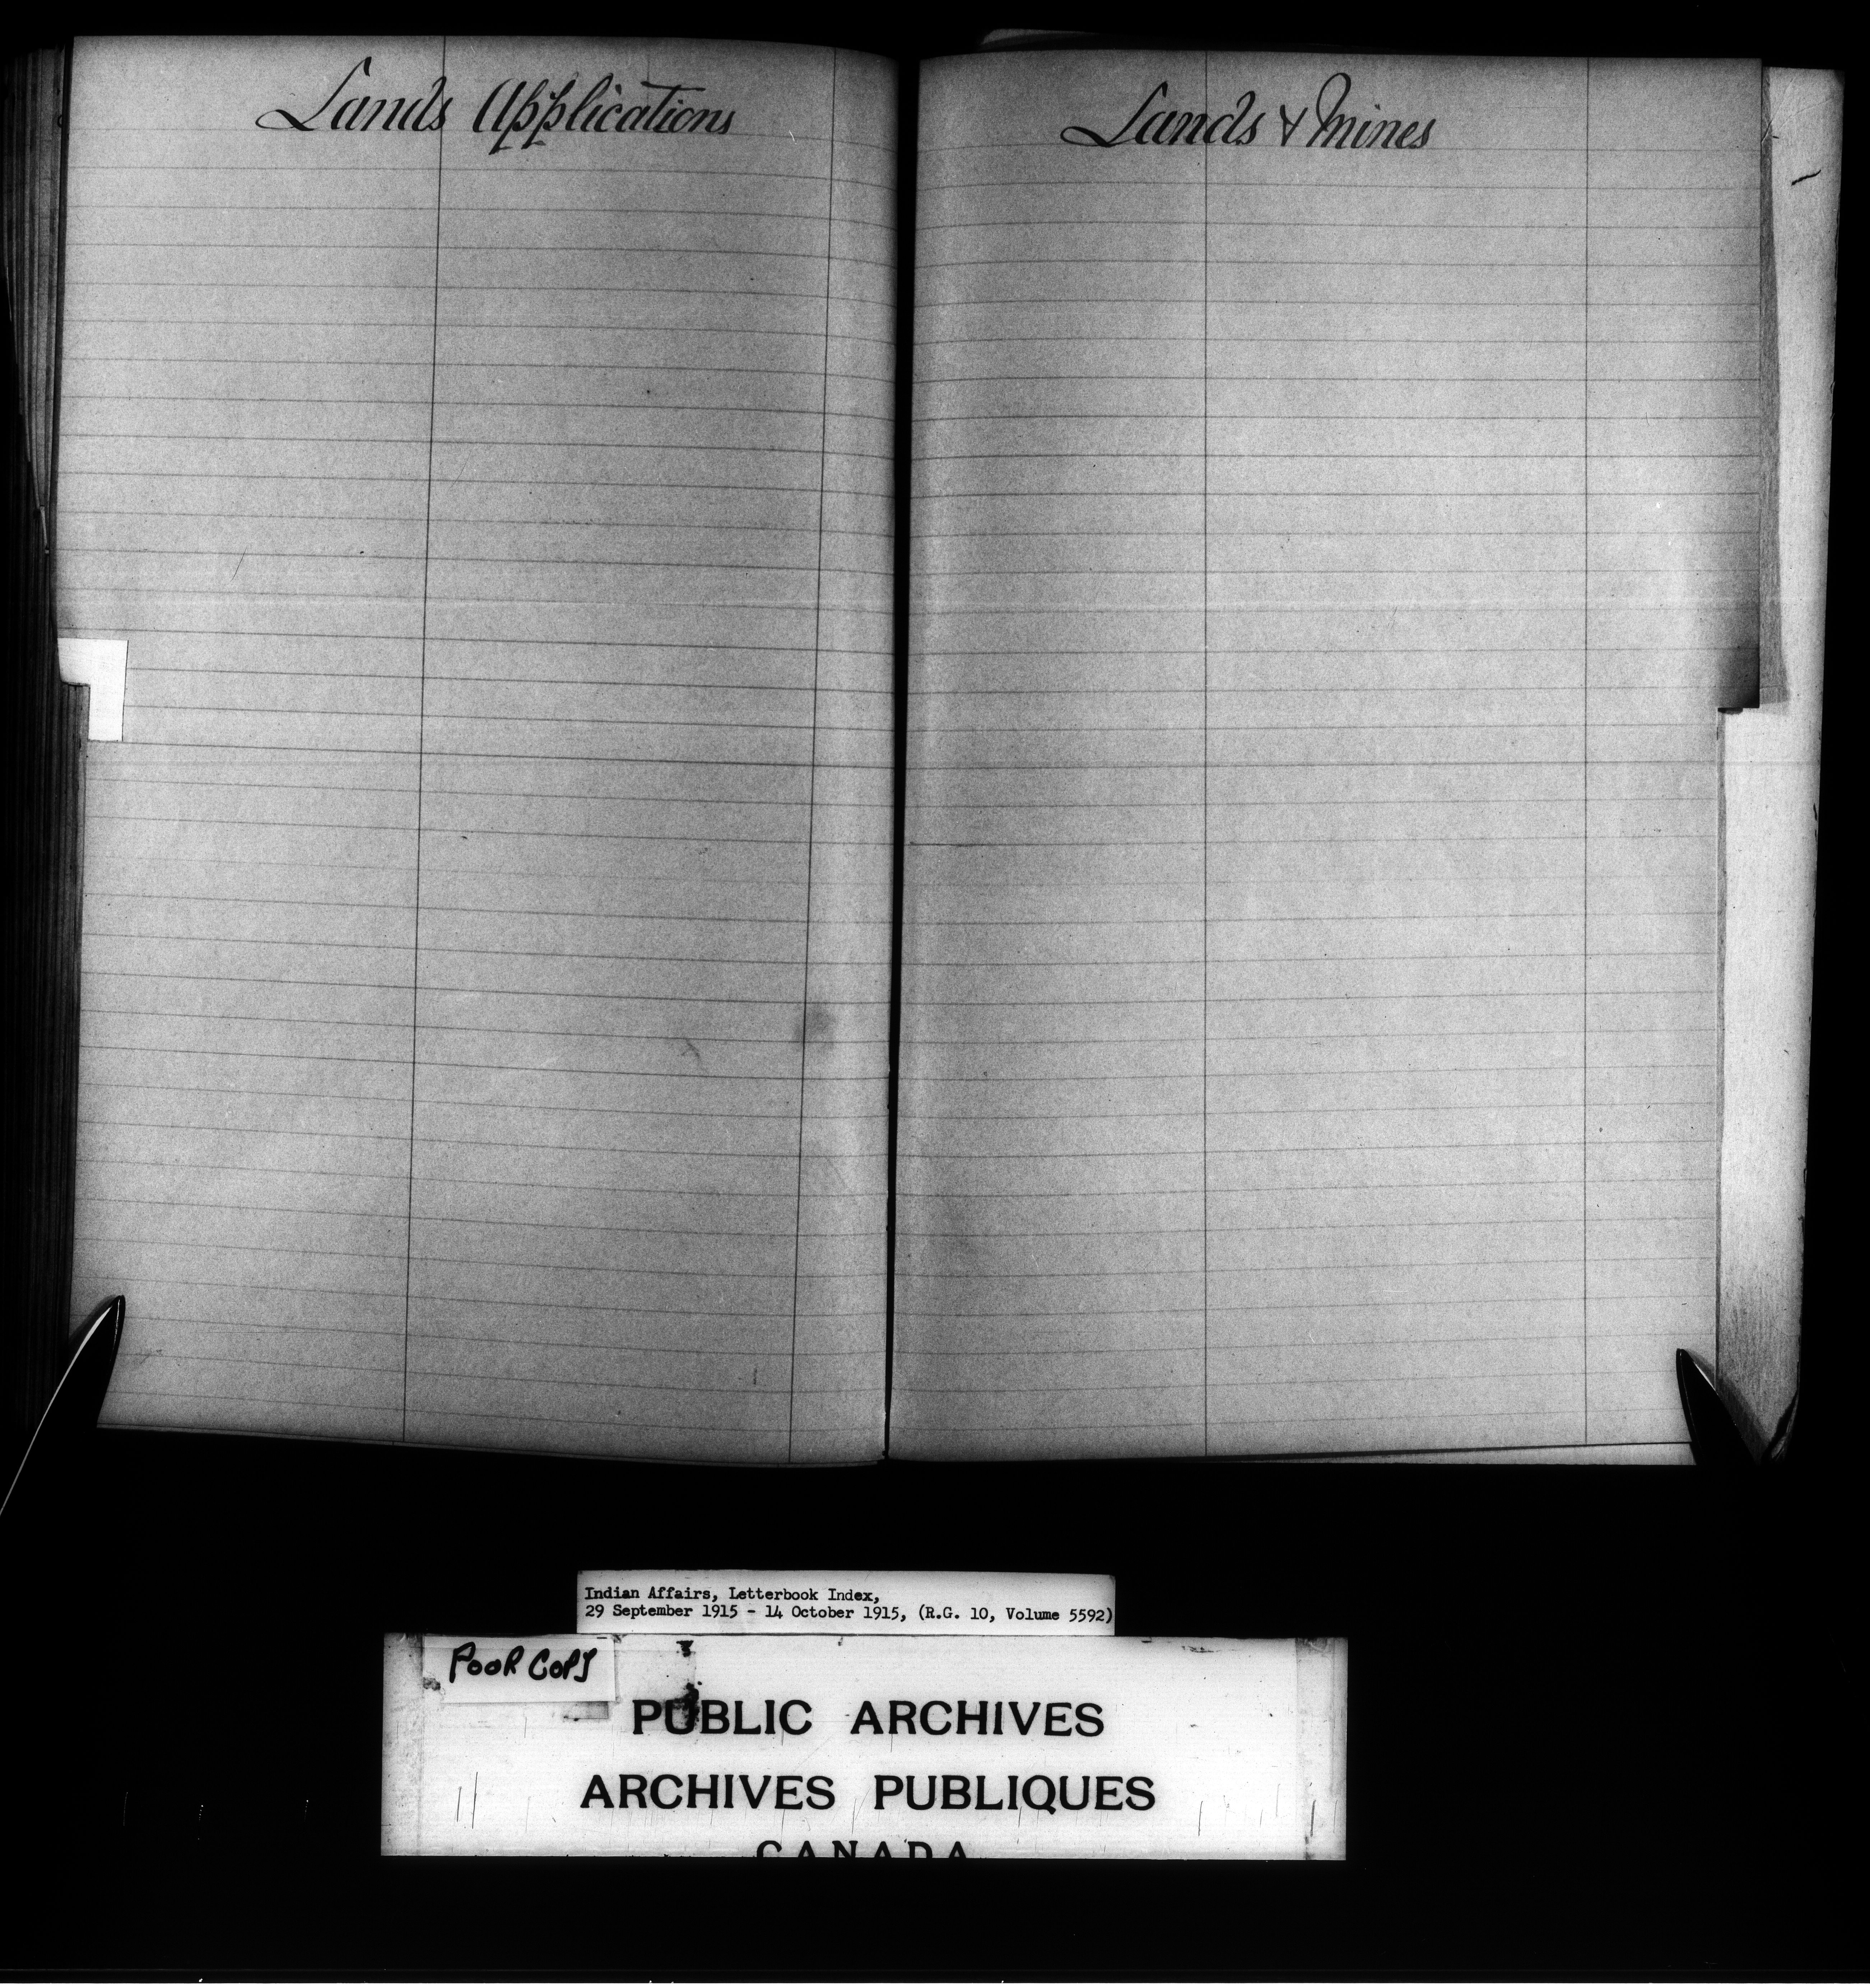 Lands Applications
Lands & Mines
Indian Affairs, Letterbook Index,
29 September 1915 - 14 October 1915, (R.G. 10, Volume 5592)
POOR COPY
PUBLIC ARCHIVES
ARCHIVES PUBLIQUES
CANADA